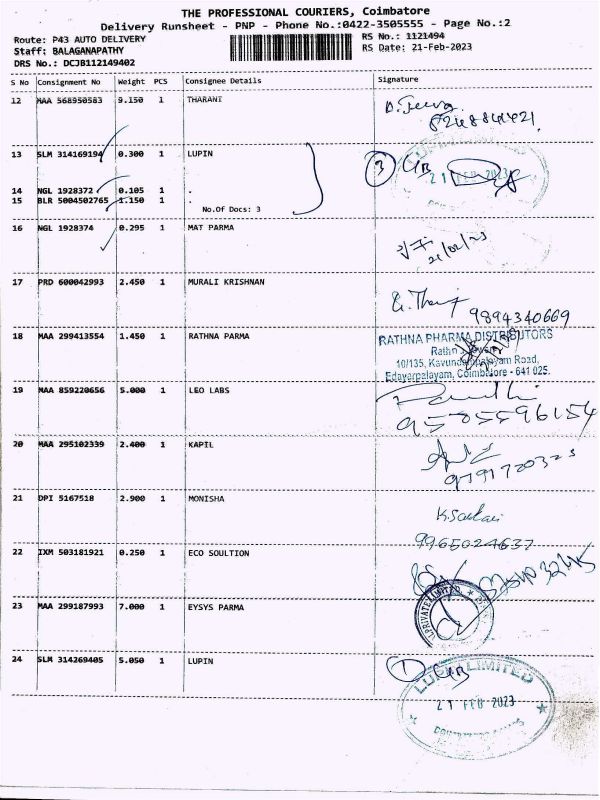 THE PROFESSIONAL COURIERS, Coimbatore
Delivery Runsheet - PNP - Phone No.:0422-3505555 - Page No.:2
Route: P43 AUTO DELIVERY RS No.: 1121494
Staff: BALAGANAPATHY RS Date: 21-Feb-2023
DRS No.: DCJB112149402
S No Consignment No Weight PCS Consignee Details Signature
12 MAA 568950583 9.150 1 THARANI
13 SLM 314169194 0.300 1 LUPIN
3
21 FEB 2023
14 NGL 1928372 0.105 1 .
15 BLR 5004502765 1.150 1 .
No.Of Docs: 3
16 NGL 1928374 0.295 1 MAT PARMA
21/02/23
17 PRD 600042993 1 2.450 1 MURALI KRISHNAN
9894340669
18 MAA 299413554 1.450 1 RATHNA PARMA
RATHNA PHARMA DISTRIBUTORS
10/135, Kavundampalayam Road,
Edayarpalayam, Coimbatore - 641 025.
19 MAA 859220656 5.000 1 LEO LABS
20 MAA 295102339 2.400 1 KAPIL
21 DPI 5167518 2.900 1 MONISHA
9965024637
22 IXM 503181921 0.250 1 ECO SOULTION
23 MAA 299187993 7.000 1 EYSYS PARMA
PRIVATE LIMITED
24 SLM 314269405 5.050 1 LUPIN
1
LUPIN LIMITED
21 FEB 2023